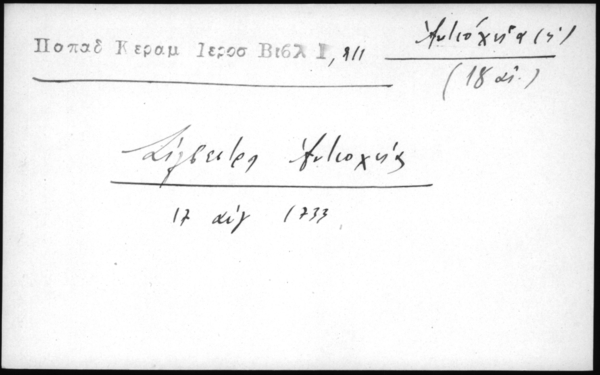 Παπαδ Κεραμ Ιεροσ Βιβλ Ι, 211
Ἀντιόχεια (ἡ)
(18 αἰ.)
Σίλβεστρος Ἀντιοχείας
17 αὐγ 1733